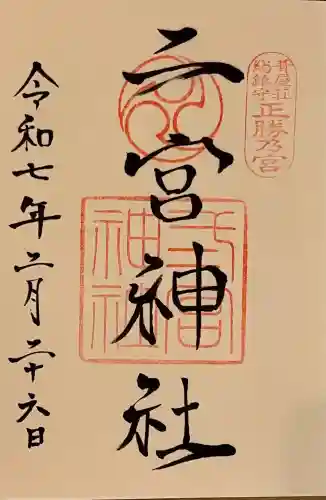 総鎮守
正勝乃宮
二宮神社
二宮神社
令和七年二月二十六日